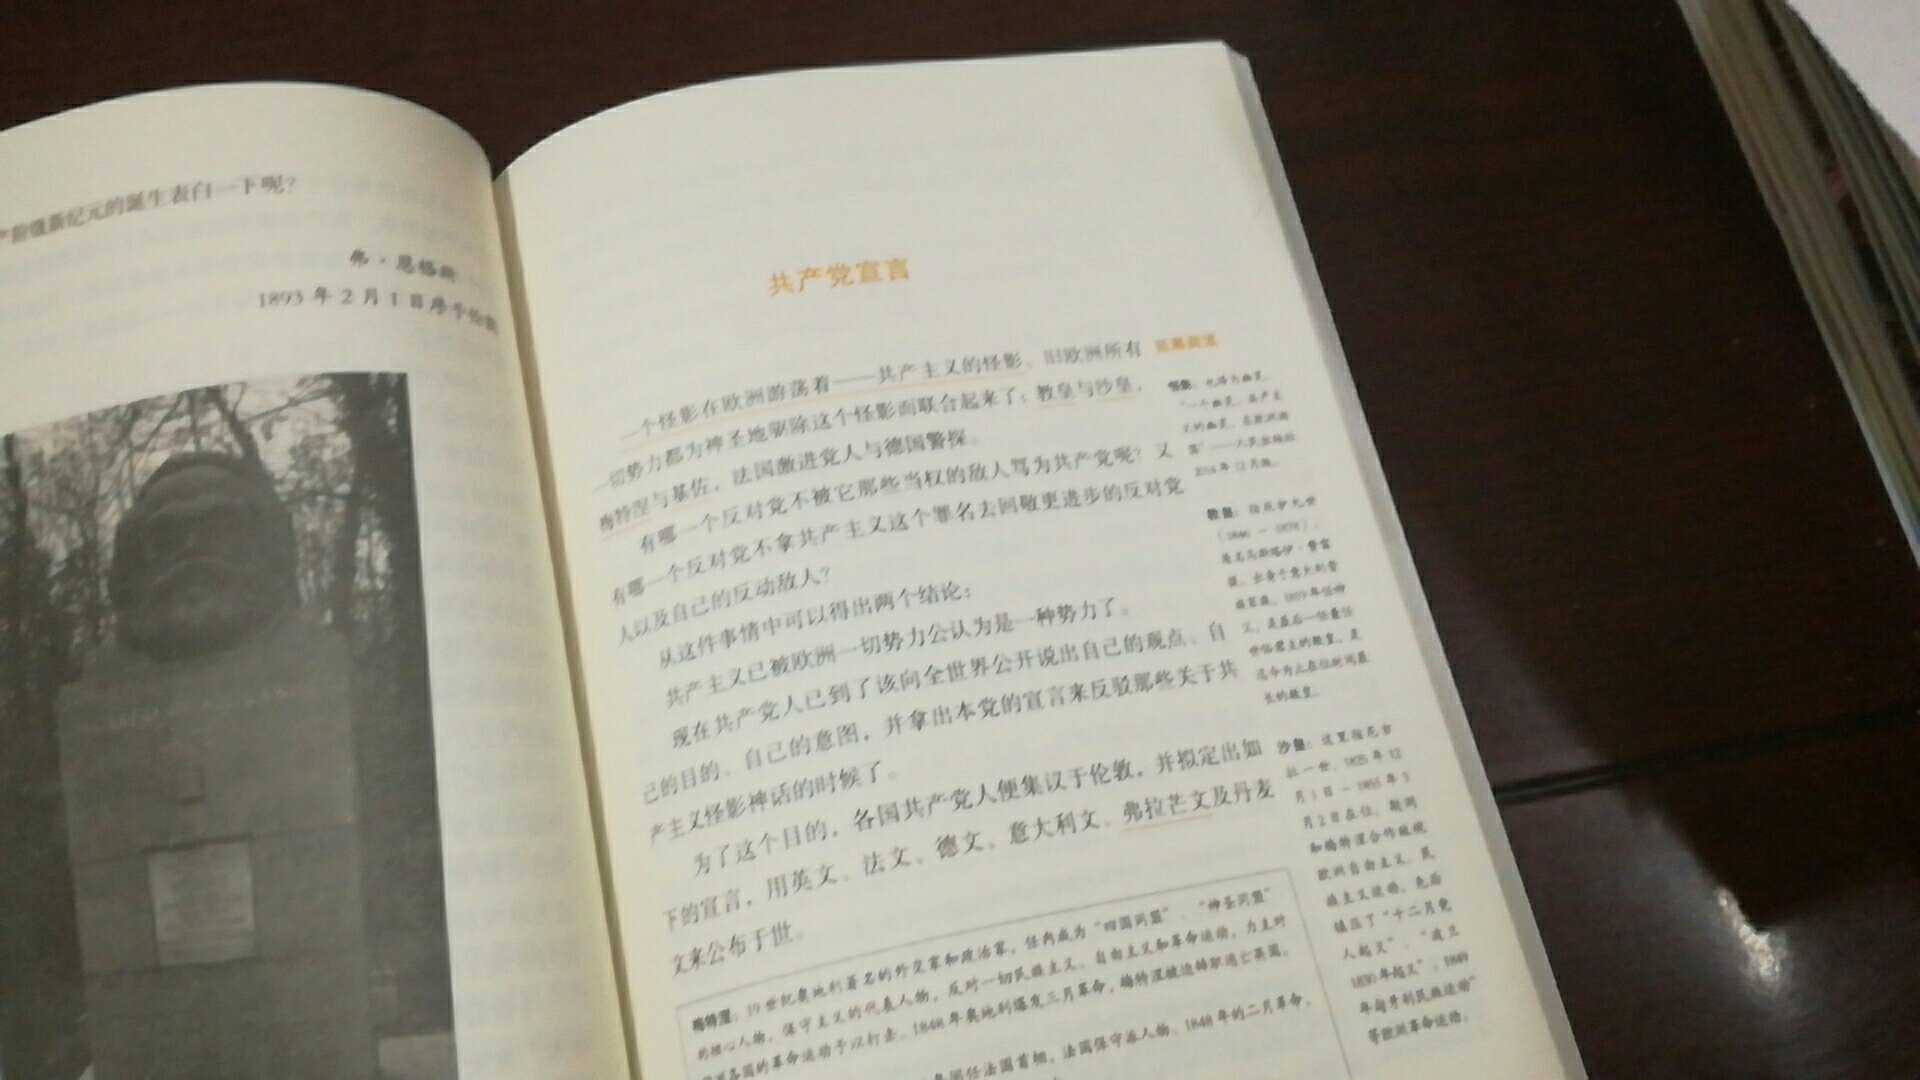 产阶级新纪元的诞生表白一下呢？
弗·恩格斯
1893 年 2 月 1 日序于伦敦
共产党宣言
一个怪影在欧洲游荡着——共产主义的怪影。旧欧洲所有
一切势力都为神圣地驱除这个怪影而联合起来了：教皇与沙皇，
梅特涅与基佐，法国激进党人与德国警探。
有哪一个反对党不被它那些当权的敌人骂为共产党呢？又
有哪一个反对党不拿共产主义这个罪名去回敬更进步的反对党
人以及自己的反动敌人？
从这件事情中可以得出两个结论：
共产主义已被欧洲一切势力公认为是一种势力了。
现在共产党人已到了该向全世界公开说出自己的观点、自
己的目的、自己的意图，并拿出本党的宣言来反驳那些关于共
产主义怪影神话的时候了。
为了这个目的，各国共产党人便集议于伦敦，并拟定出如
下的宣言，用英文、法文、德文、意大利文、弗拉芒文及丹麦
文来公布于世。
梅特涅：19 世纪奥地利著名的外交家和政治家，任内成为“四国同盟”、“神圣同盟”
的核心人物，保守主义的代表人物，反对一切民族主义、自由主义和革命运动，力主对
各国的革命运动予以打击。1848 年奥地利爆发三月革命，梅特涅被迫辞职逃亡英国。
任法国首相，法国保守派人物。1848 年的二月革命，
延展阅读
怪影：也译为幽灵。
“一个幽灵，共产主
义的幽灵，在欧洲游
荡”——人民出版社
2014 年 12 月版。
教皇：指庇护九世
（1846 － 1878），
意大利贵
任神
父，是最后一任兼任
世俗君主的教皇，是
迄今为止在位时间最
长的教皇。
沙皇：这里指尼古
拉一世，1825 年 12
月 1 日－1855 年 3
月 2 日在位，期间
和梅特涅合作敌视
欧洲自由主义、民
族主义运动，先后
镇压了“十二月党
人起义”、“波兰
1830 年起义”、1849
年匈牙利民族运动”
等欧洲革命运动。